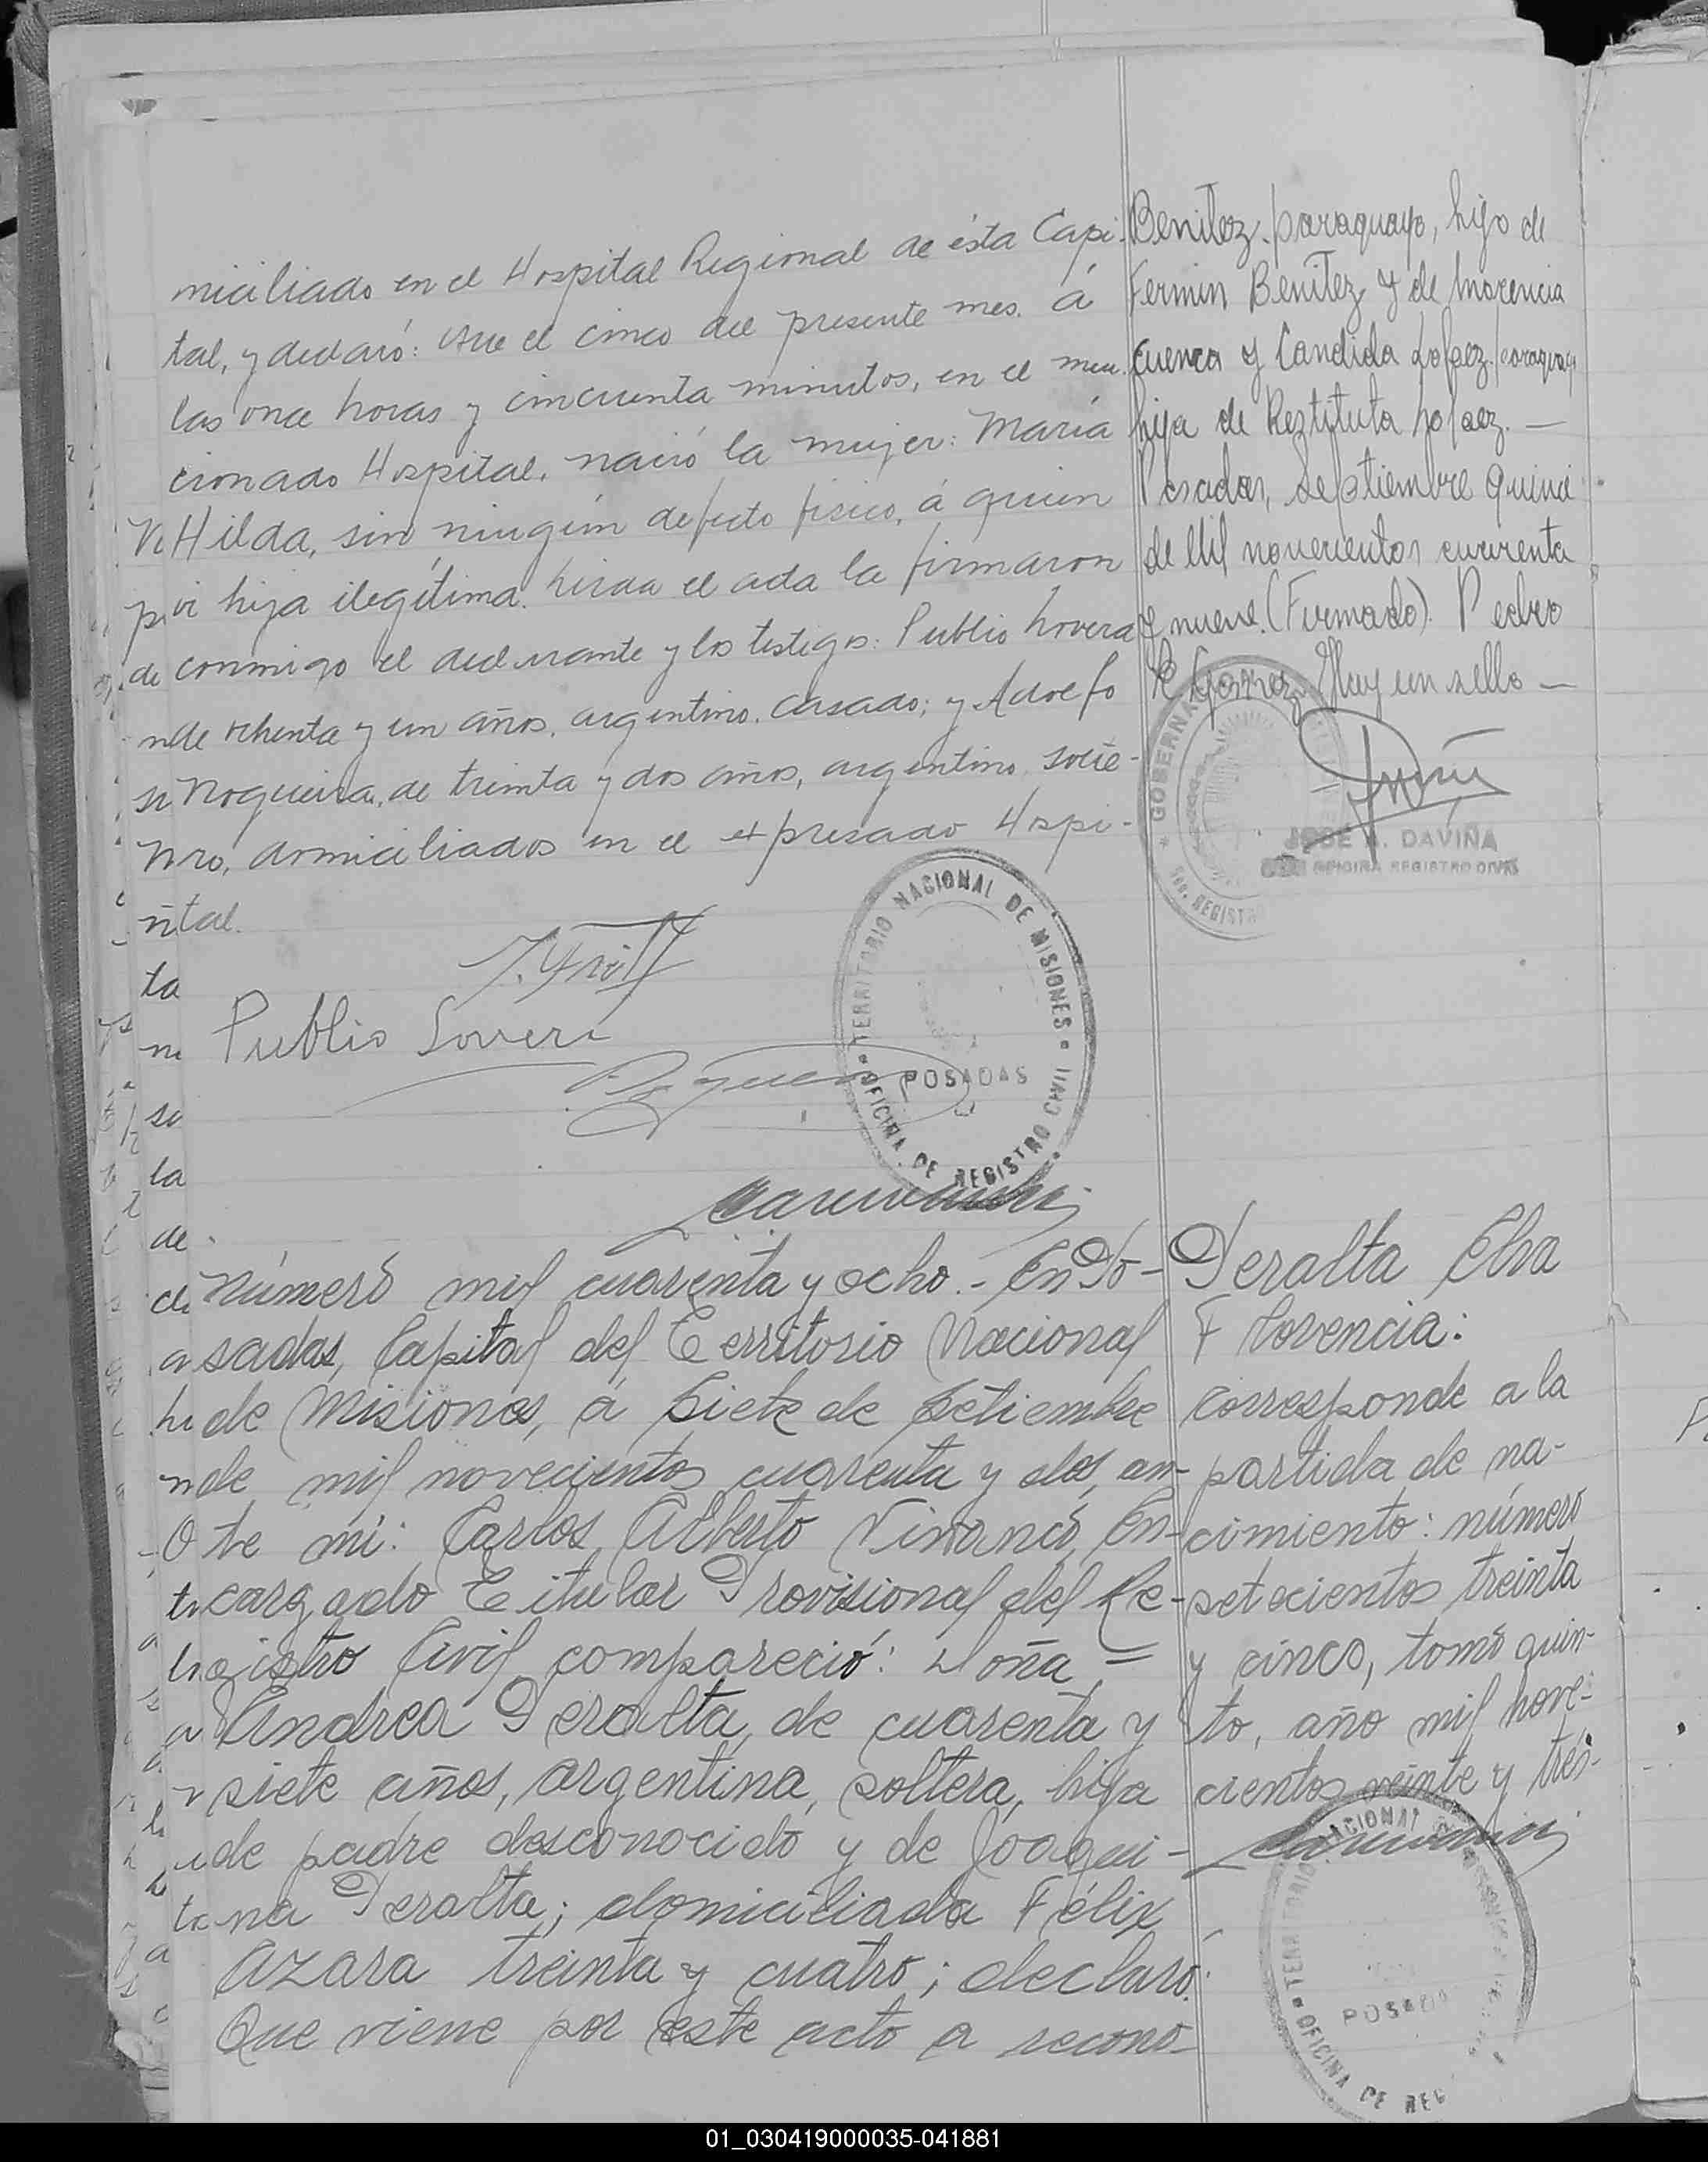 miciliado en el Hospital Regional de ésta Capi-
tal, y declaró: Que el cinco del presente mes. á
las once horas y cincuenta minutos, en el men-
cionado Hospital, nació la mujer: María
Hilda, sin ningún defecto físico, á quien
hija ilegítima. Leída el acta la firmaron
conmigo el declarante y los testigos: Publio Lovera
de ochenta y un años, argentino, casado; y Adolfo
Nogueira, de treinta y dos años, argentino, solte-
ro, domiciliados en el expresado Hospi-
tal.
Publio Lovera
TERRITORIO NACIONAL DE MISIONES
POSADAS
OFICINA DE REGISTRO CIVIL
Benitez, paraguayo, hijo de
Fermin Benitez y de Maxencia
Cuenca y Candida Lopez, paraguaya
hija de Restituta Lopez. —
Posadas, Septiembre quince
de Mil novecientos cuarenta
y nueve. (Firmado). Pedro
E Gomez. Hay un sello —
GOBERNAC
REGISTR
JOSÉ A. DAVIÑA
OFICINA REGISTRO CIVIL
Número mil cuarenta y ocho.- En Po-
sadas, Capital del Territorio Nacional
de Misiones, á siete de setiembre
de mil novecientos cuarenta y dos, an-
te mí: Carlos Alberto Vivancó, En-
cargado Titular Provisional del Re-
gistro Civil compareció: Doña =
Andrea Peralta, de cuarenta y
siete años, argentina, soltera, hija
de padre desconocido y de Joaqui-
na Peralta; domiciliada Félix
Azara treinta y cuatro; declaró:
Que viene por este acto a recono-
Peralta Elva
Florencia:
corresponde a la
partida de na-
cimiento: número
setecientos treinta
y cinco, tomo quin-
to, año mil nove-
cientos veinte y tres-
TERRITORIO NACIONAL
POSADAS
OFICINA DE REG
01_030419000035-041881